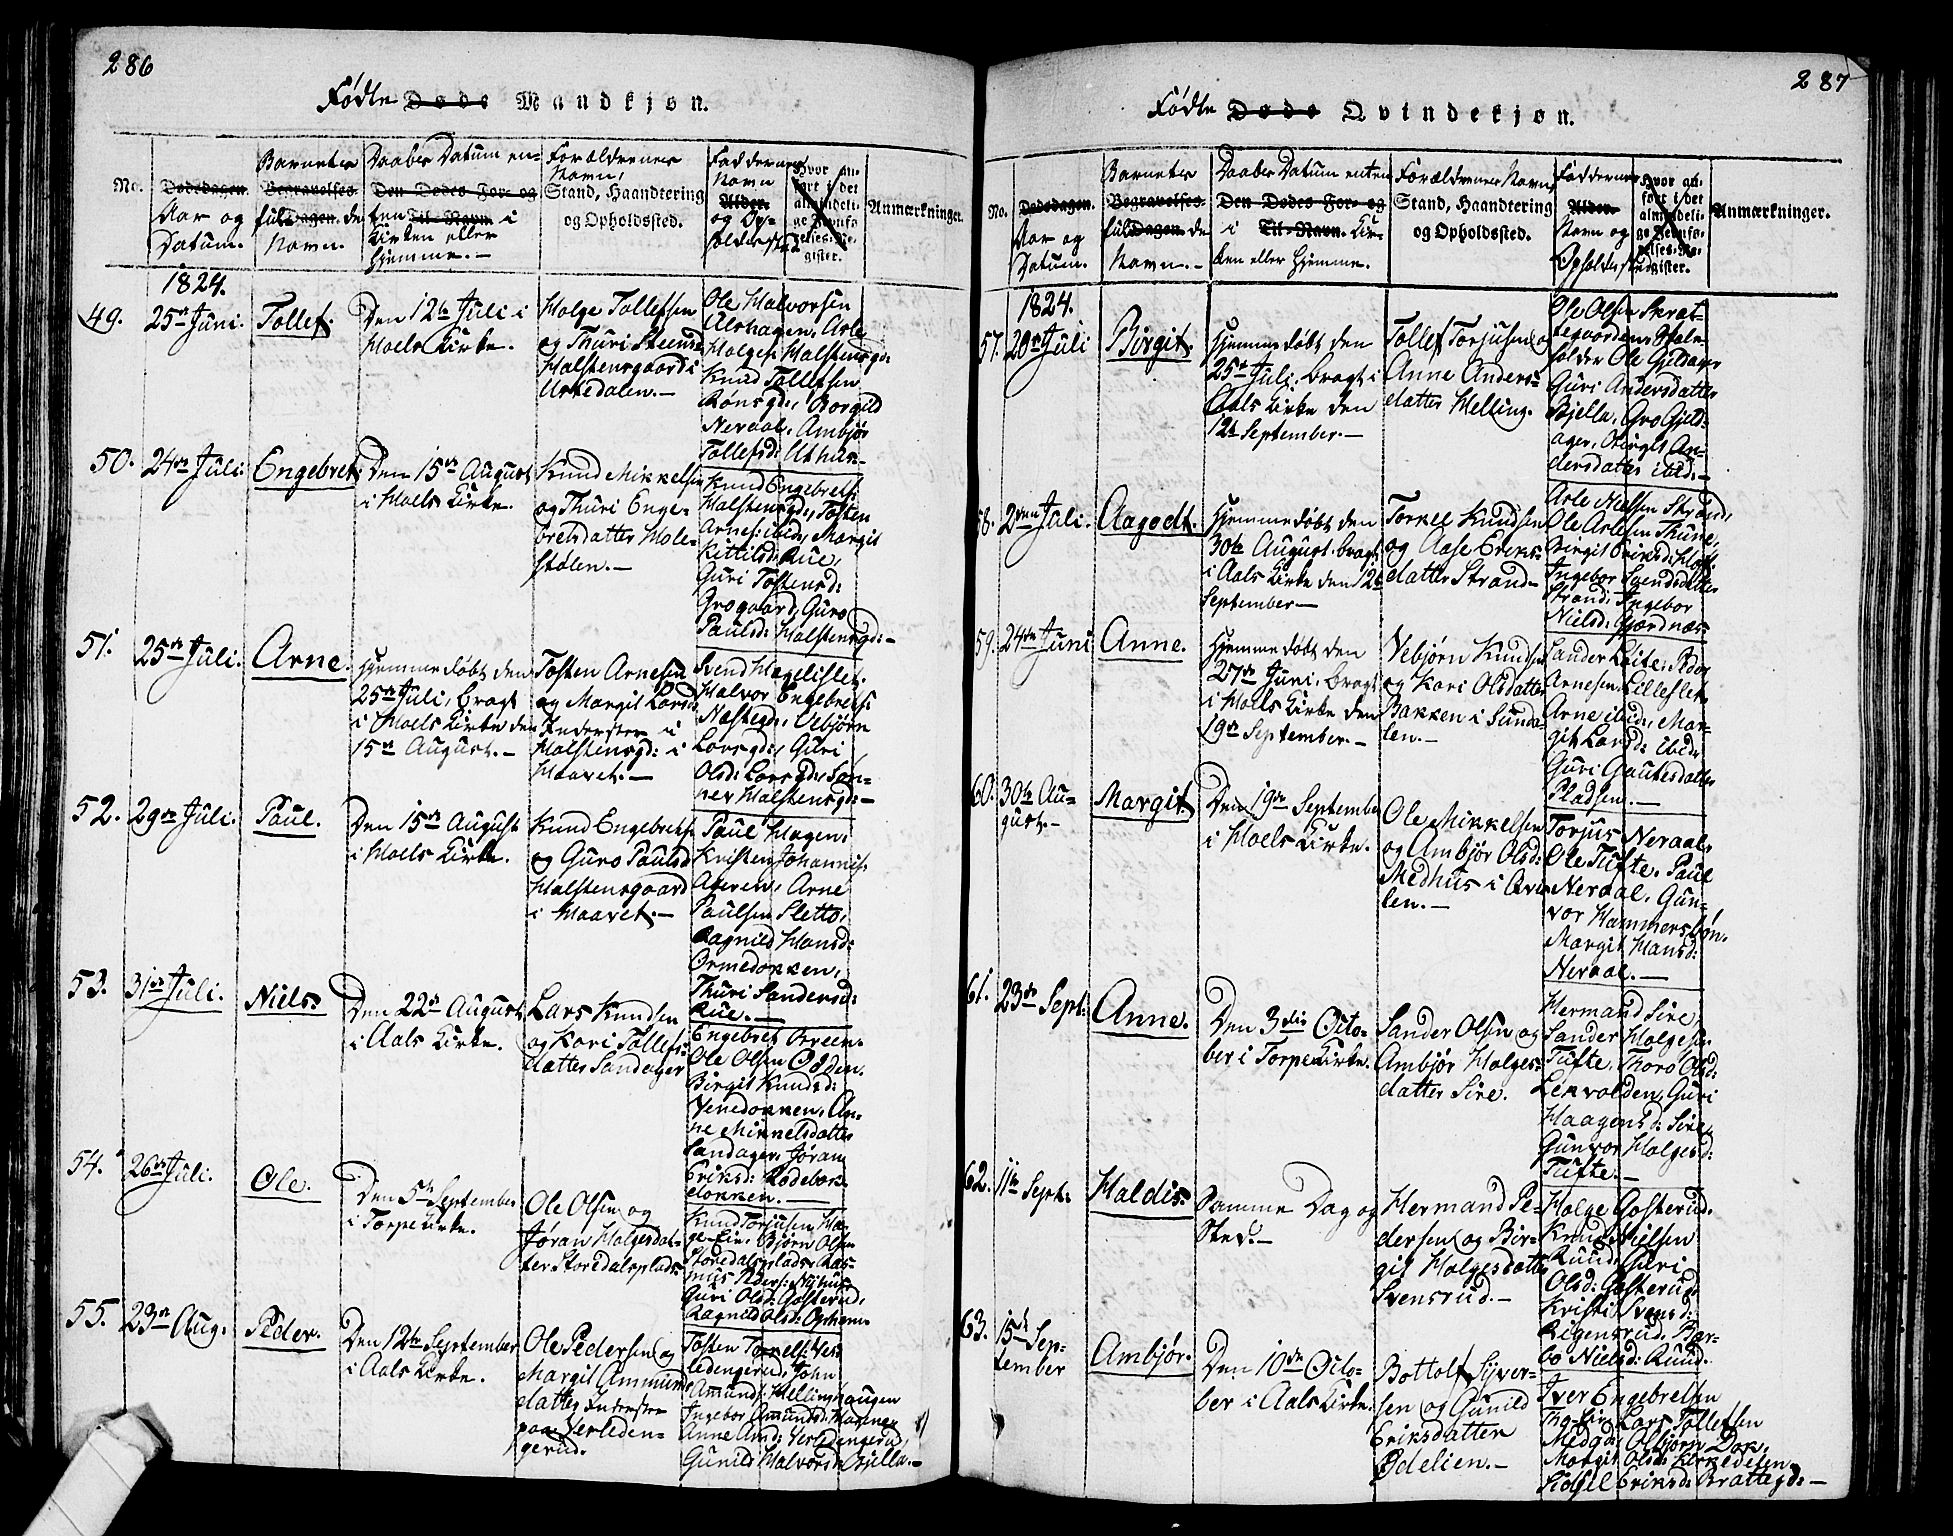 286
Fødte Døde Mandkjøn.
No.
Dødsdagen.
Aar og
Datum.
Barnets
Begravelses-
fulde Dagen.
Navn.
Daabes Datum en-
Den Dødes For- og
ten Til-Navn i
Kirken eller
hjemme.-
Forældrenes
Navn,
Stand, Haandtering
og Opholdssted.
Faddernes
Navn
Alder.
og Op-
holdssted
Hvor an-
ført i det
almindeli-
ge Jevnfø-
relses-Re-
gister.
Anmærkninger.
1824.
49.
25de Juni.
Tollef.
Den 12te Juli i
Hoels Kirke.
Holge Tollefsen
og Thuri Steensd
Halstensgaard i
Urkedalen.-
Ole Halvorsen
Alrhagen, Asle
Holges: Halstensgd:
Knud Tollefsen
Rønsgd:, Borgild
Neraal, Ambjør
Tollefsd: Uthus-
50.
24de Juli.
Engebret.
Den 15de August
i Hoels Kirke.
Knud Mikkelsen
og Thuri Enge-
bretsdatter Mole-
stølen.-
Knud Engebrets:
Halstensgd:, Tosten
Arnes: ibid, Margit
Kittilsd: Rue,
Guri Tostensd:
Grogaard, Guro
Paulsd: Halstensgd:-
51.
25de Juli.
Arne.
Hjemmedøbt den
25de Juli, bragt
i Hoels Kirke den
15de August.-
Tosten Arnesen
og Margit Larsd
Inderster i
Halstensgd: i
Haavet.-
Svend Hagelislet.
Halvor Engebrets:
Næstegd:, Vebjørn
Larsgd:, Guri
Olsd: Larsgd:, Søn-
nev Halstensgd:-
52.
29de Juli.
Paul.
Den 15de August
i Hoels Kirke.
Knud Engebrets:
og Guro Paulsd
Halstensgaard
i Haavet.-
Paul Hagen,
Kristen Johannis-
Ageren, Arne
Paulsen Sletto,
Ragnild Hansd:
Ormedokken,
Thuri Sandersd:
Rue.-
53.
31de Juli.
Niels.
Den 22de August
i Aals Kirke.
Lars Knudsen
og Kari Tollefs-
datter Sandager
Engebret Breen.
Ole Olsen Odden.
Birgit Knudsd:
Venedokken, An-
ne Mikkelsdatter
Sandager, Jøran
Eriksd: Rødebok-
dokken.-
54.
26de Juli.
Ole.
Den 5te September
i Torpe Kirke.
Ole Olsen og
Jøran Holgesdat-
ter Storedalsplads:
Knud Torjusen Ha-
ge-Eie, Bjørn Olsen
Storedalsplads, Ras-
mus Peders: Nyhus
Guri Olsd: Gosterud,
Ragnild Olsd: Opheim.
55.
23de Aug.
Peder.
Den 12te September
i Aals Kirke.
Ole Pedersen og
Margit Ammunds
datter Inderster
paa Verleden-
gerud.
Tosten Torkels: Ver-
ledengerud, John
Amunds: Hellinghaugen
Ingebor Amundsd:
Anne Amd: Verledengerud,
Gunild Halvorsd: Bjella.-
287
Fødte Døde Qvindekjøn.
No.
Dødsdagen.
Aar og
Datum.
Barnets
Begravelses-
fulde Dagen.
Navn.-
Daabes Datum enten
Den Dødes For- og
i Til-Navn. Kir-
ken eller hjemme.
Forældrenes Navn,
Stand, Haandtering
og Opholdssted.
Faddernes
Alder.
Navn og
Opholdssted
Hvor an-
ført i det
almindeli-
ge Jevnfø-
relses-Re-
gister.
Anmærkninger.
1824.
57.
20de Juli
Birgit.
Hjemmedøbt den
25de Juli, bragt i
Aals Kirke den
12te September.-
Tollef Torjusen og
Anne Anders-
datter Helling.
Ole Olsen Skrat-
tegaarden,
Ole Gjeldager
Guri Andersdatter
Bjella, Gro Gjeld-
ager, Birgit An-
dersdatter ibid.-
58.
2den Juli.
Aagodt.
Hjemmedøbt den
30te August. bragt
i Aals Kirke den 12te
September-
Torkel Knudsen
og Aase Eriks-
datter Strand-
Asle Nielsen Strand,
Ole Arlesen Thune,
Birgit Eriksd:
Ingebor Svendsdatter
Strand. Ingebor
Nielsd: Gjerdnæs-
59.
24de Juni
Anne.
Hjemmedøbt den
27de Juni, bragt
i Hoels Kirke den
19de September.-
Vebjørn Knudsen
og Kari Olsdatter
Bakken i Sunda-
len.-
Sander Leite, Peder
Arnesen Lilleslet
Arne ibid:, Mar-
git Larsd: ibid:
Guri Gautesdatter
Pladsen.-
60.
30te Au-
gust.-
Margit
Den 19de September
i Hoels Kirke.
Ole Mikkelsen
og Ambjør Olsd:
Medhus i
len.-
Torjus Neraal,
Ole Tufte, Paul
Neraal, Gun-
vor Hammersbøn.
Margit Hansd:
Neraal.-
61.
23de Sept:
Anne.
Den 3die Octo-
ber i Torpe Kirke.
Sander Olsen og
Ambjør Holges-
datter Sire.
Hermand Sire,
Sander Holgesen
Tufte, Thoro Olsd:
Lekvolden, Guri
Haagensd: Sire,
Gunvor Holgesd:
Tufte.-
62.
11te Sept:
Haldis.
Samme Dag og
Sted.-
Hermand Pe-
dersen og Bir-
git Holgesdatter
Svensrud.-
Holge Gosterud.
Knud Nielsen
Ruud, Guri
Olsd: Gosterud
Kristi Svensd:
Rigensrud, Bar-
bo Nielsd: Ruud.
63.
15de Sep-
tember
Ambjør.
Den 10de Octo-
ber i Aals Kirke.
Bottolf Syver-
sen og Gunild
Eriksdatter
Ødelien.-
Iver Engebretsen
Lars Tollefsen
Medgd: Olbjørn Dok,
Margit Olsd: Kirkedelen
Sidsel Eriksd: Brattegd:-